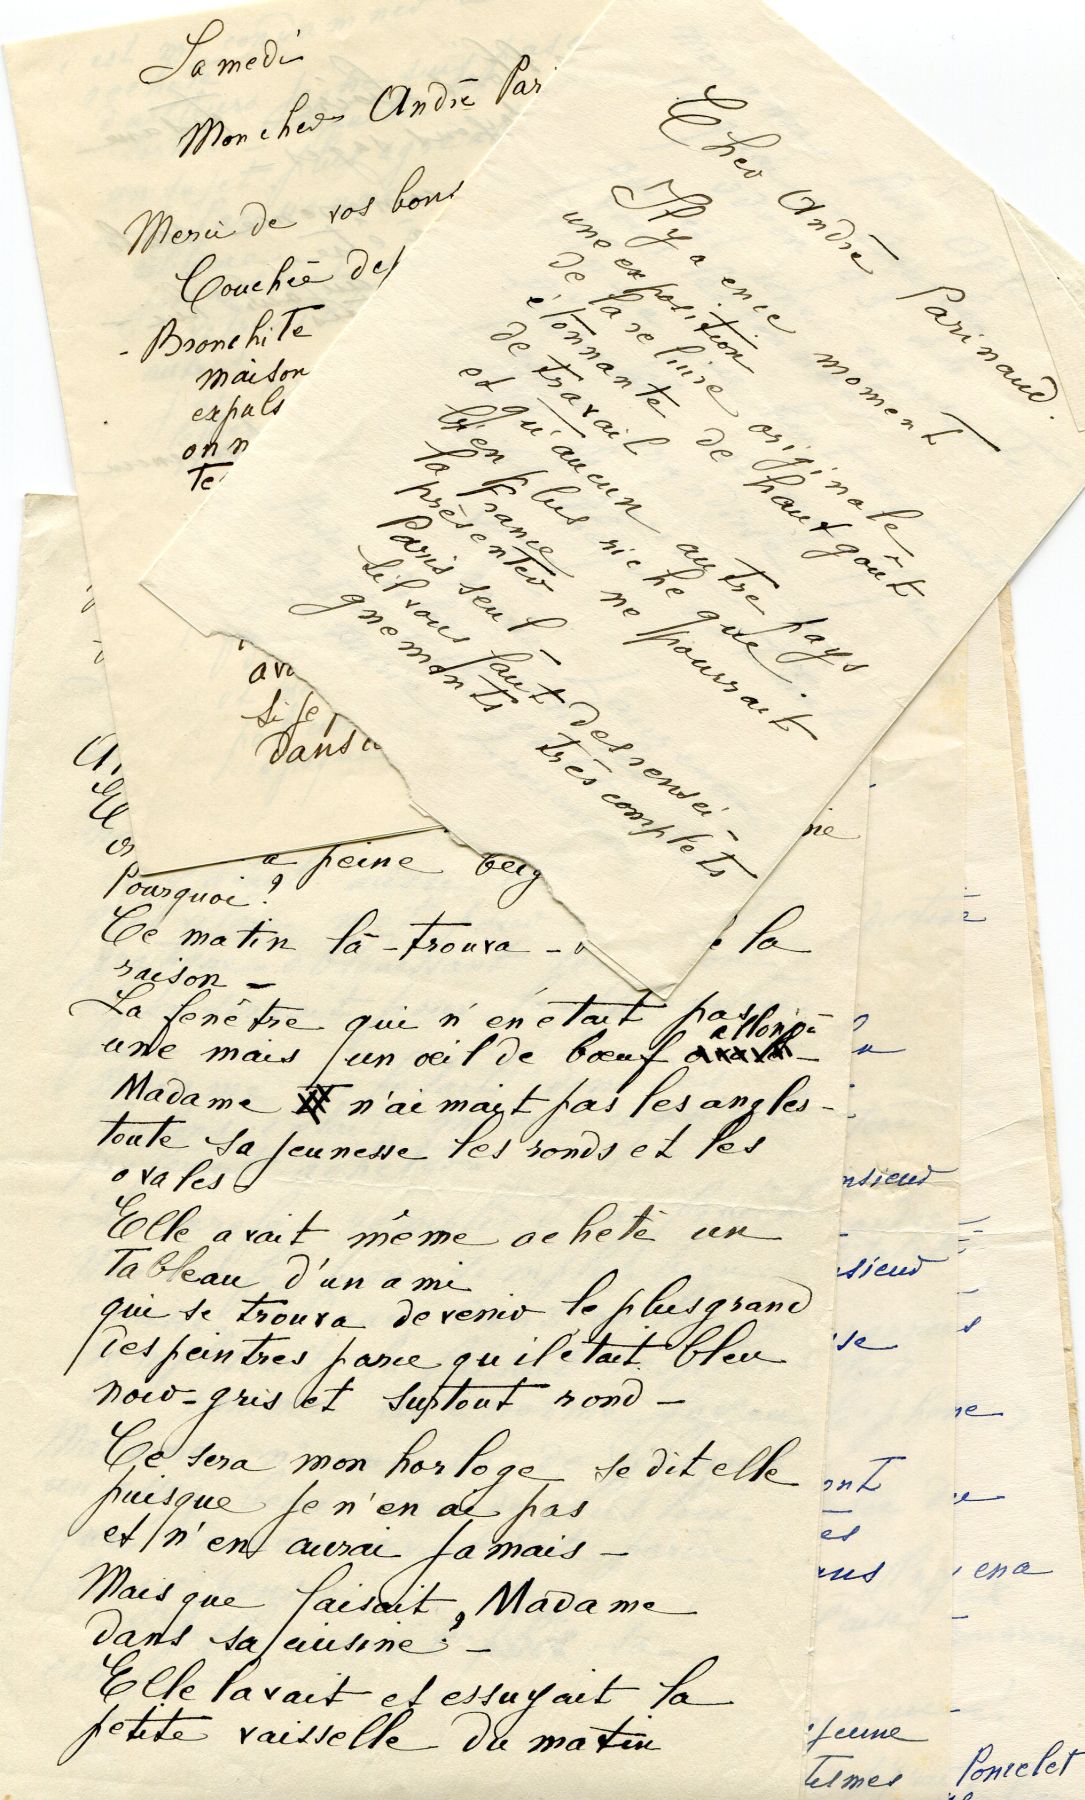 Samedi
Mon cher André Par
Merci de vos bons
Couchée de
- Bronchite
maison
expuls
on n
te
av
si je
dans
Cher André Parinaud.
Il y a en ce moment
une exposition
de la reliure originale
étonnante de haut goût
de travail
et qu'aucun autre pays
bien plus riche que
la France ne pourrait
présenter
Paris seul
s'il vous faut des rensei-
gnements très complets
à peine beig
Pourquoi ?
Ce matin là - trouva - la
raison -
La fenêtre qui n'en était pas
une mais un œil de bœuf allongé -
Madame n'aimait pas les angles -
toute sa jeunesse les ronds et les
ovales
Elle avait même acheté un
Tableau d'un ami
qui se trouva devenir le plus grand
des peintres parce qu'il était bleu
noir - gris et surtout rond -
Ce sera mon horloge se dit elle
puisque je n'en ai pas
et n'en aurai jamais -
Mais que faisait Madame
dans sa cuisine ? -
Elle lavait et essuyait la
petite vaisselle du matin
ne
nsieur
sieur
se
ont
es
ne
ena
jeune
termes
Poncelet